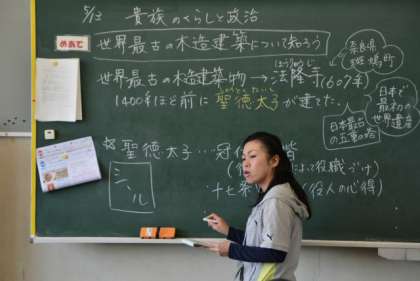 5/12 貴族のくらしと政治
めあて
世界最古の木造建築について知ろう
世界最古の木造建築物→法隆寺(607年)
ほうりゅうじ
1400年ほど前に聖徳太子が建てた。
しょうとくたいし
奈良県
斑鳩町
日本で
最初の
世界遺産
日本最古
の五重の塔
聖徳太子…冠位
階
によって役職づけ)
シール
・十七条
役人の心得)